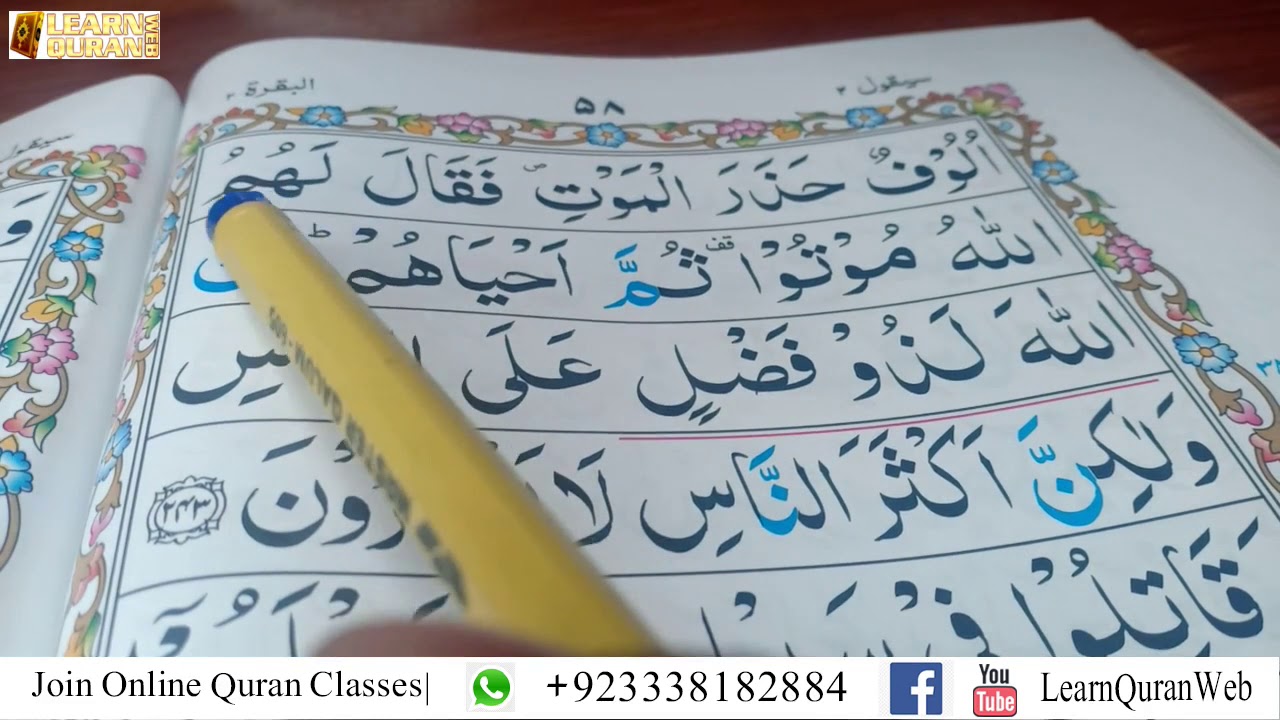 LEARN QURAN WEB
البقرة ٢
٥٨
سيقول ٢
اُلُوْفٌ حَذَرَ الْمَوْتِ ۪ فَقَالَ لَهُمُ
اللّٰهُ مُوْتُوْا قف ثُمَّ اَحْيَاهُمْ ؕ
اللّٰهَ لَذُوْ فَضْلٍ عَلَی
وَلٰكِنَّ اَكْثَرَ النَّاسِ لَا ﴿٢٤٣﴾
قَاتِلُوْا فِیْ
Join Online Quran Classes|
+923338182884
You Tube
LearnQuranWeb